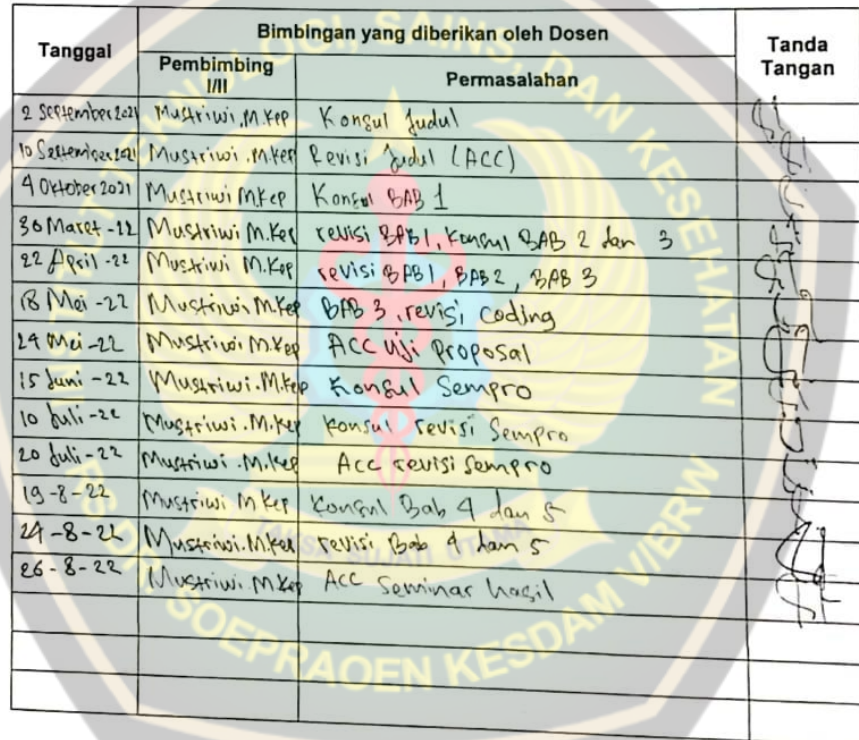 Tanggal
Bimbingan yang diberikan oleh Dosen
Tanda Tangan
Pembimbing I/II
Permasalahan
2 September 2021 Mustriwi, M.Kep Konsul Judul
10 September 2021 Mustriwi. M.Kep Revisi Judul (ACC)
4 Oktober 2021 Mustriwi M.Kep Konsul BAB 1
30 Maret -22 Mustriwi M.Kep revisi BAB 1, Konsul BAB 2 dan 3
22 April -22 Mustriwi M.Kep revisi BAB 1, BAB 2, BAB 3
18 Mei -22 Mustriwi M.Kep BAB 3, revisi coding
24 Mei -22 Mustriwi M.Kep ACC Uji Proposal
15 Juni -22 Mustriwi.M.Kep Konsul Sempro
10 Juli -22 Mustriwi.M.Kep Konsul revisi Sempro
20 Juli -22 Mustriwi .M.Kep Acc revisi Sempro
19-8-22 Mustriwi M Kep Konsul Bab 4 dan 5
24-8-22 Mustriwi.M.Kep revisi Bab 4 dan 5
26-8-22 Mustriwi.M.Kep Acc Seminar hasil
INSTITUT TEKNOLOGI, SAINS, DAN KESEHATAN
RS DR. SOEPRAOEN KESDAM V/BRW